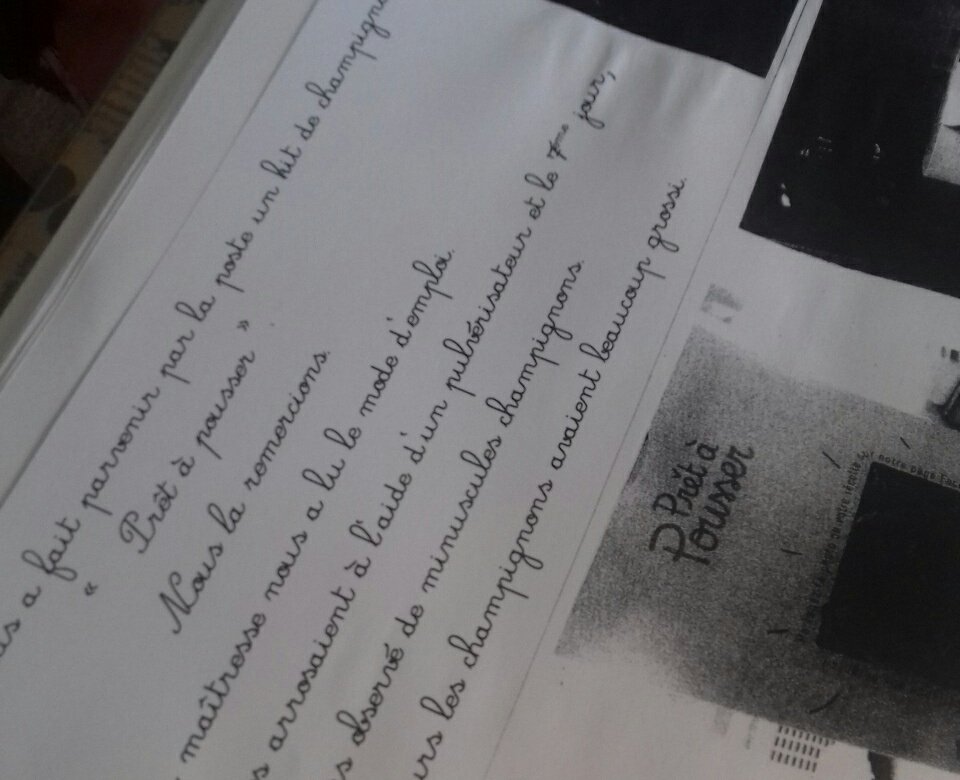 a fait parvenir par la poste un kit de
« Prêt à pousser »
Nous la remercions.
maîtresse nous a lu le mode d'emploi.
arrosaient à l'aide d'un pulvérisateur et le 7ème jour,
observé de minuscules champignons.
les champignons avaient beaucoup grossi.
Prêt à
Pousser
sur notre page